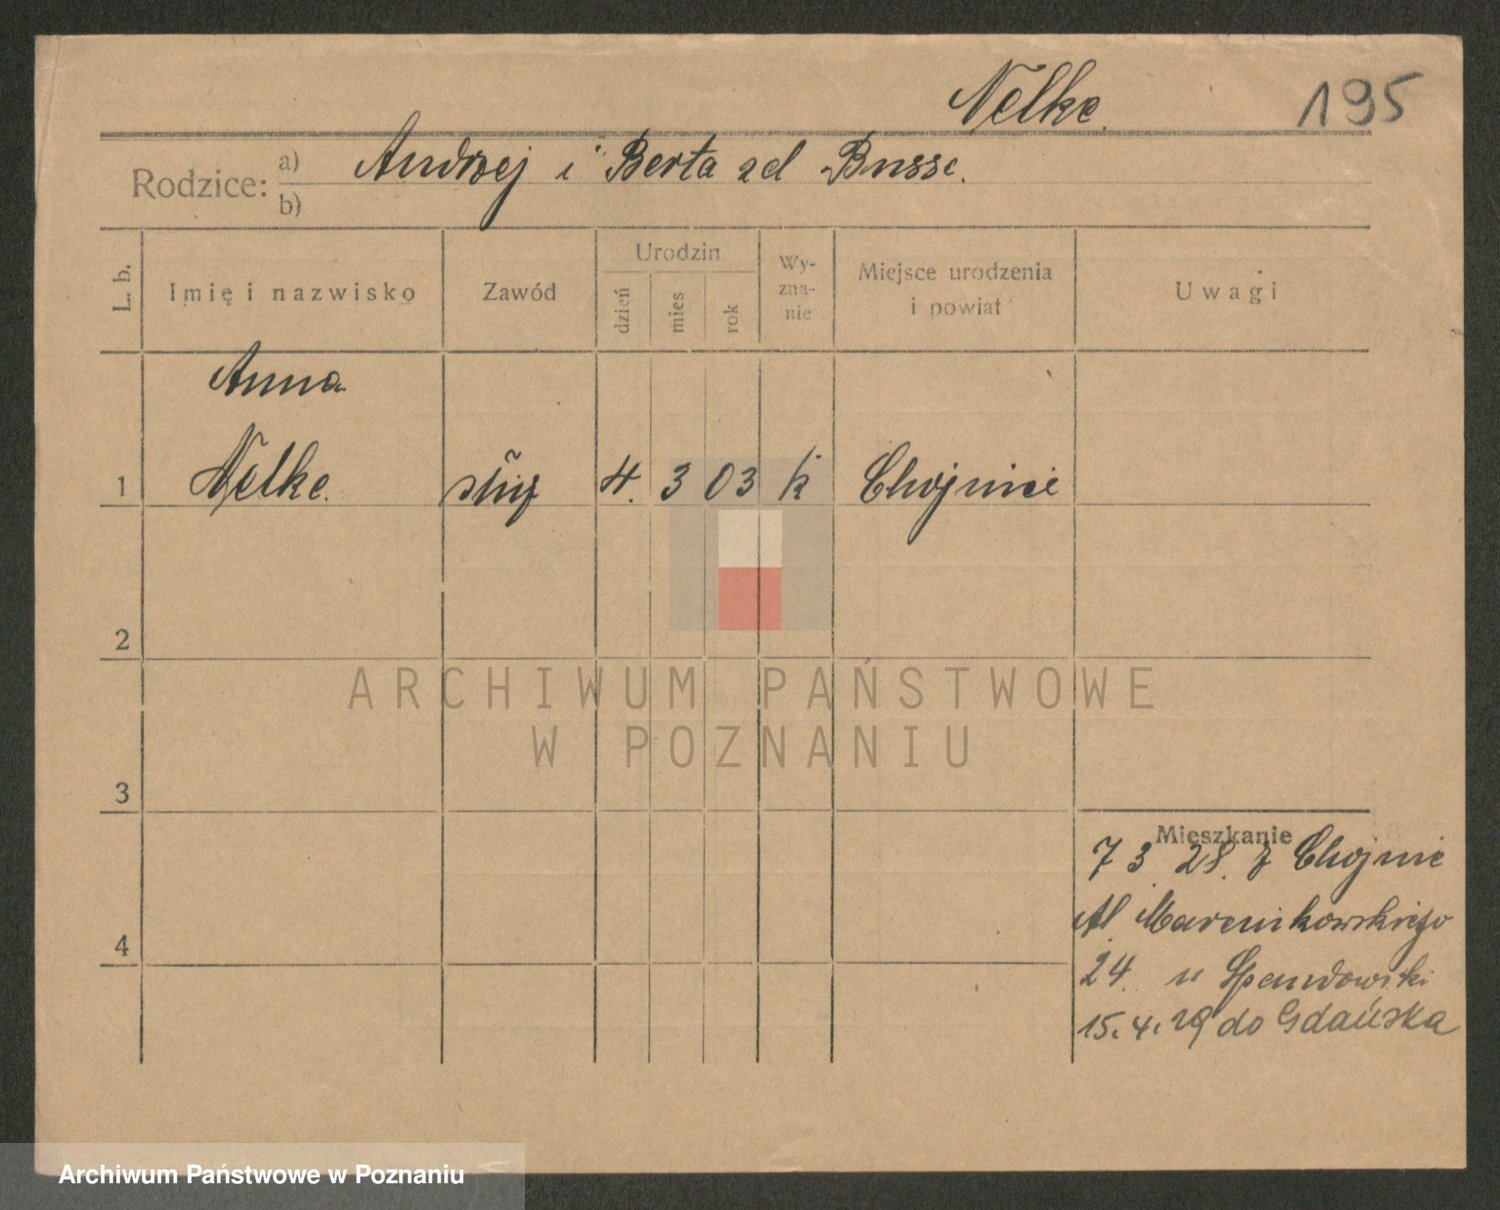 Nelke.
195
Rodzice: a) Andrzej i Berta zd Busse.
b)
L. b.
Imię i nazwisko
Zawód
Urodzin
dzień
mies
rok
Wy-
zna-
nie
Miejsce urodzenia
i powiat
Uwagi
Anna
1 Nelke. służ 4. 3 03 k Chojnice
2
ARCHIWUM PAŃSTWOWE
W POZNANIU
3
Mieszkanie
7 3 28. z Chojnic
Al. Marcinkowskiego
4
24. u Spendowski
15. 4. 29 do Gdańska
Archiwum Państwowe w Poznaniu